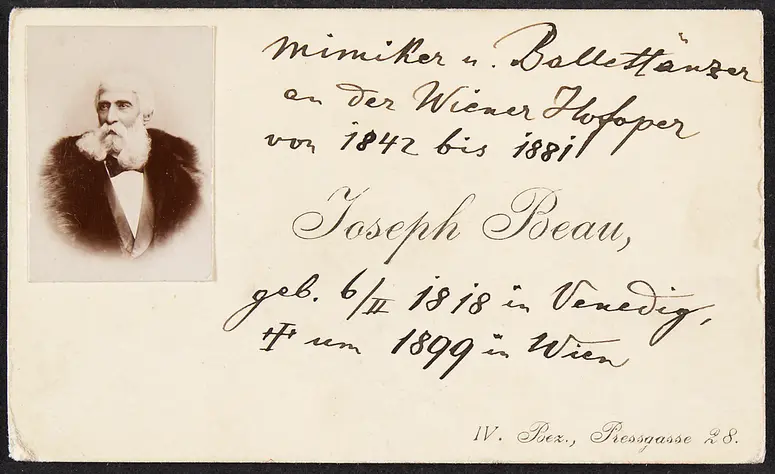 Mimiker u. Ballettänzer
an der Wiener Hofoper
von 1842 bis 1881
Joseph Beau,
geb. 6/II 1818 in Venedig,
‡ um 1899 in Wien
IV. Bez., Pressgasse 28.